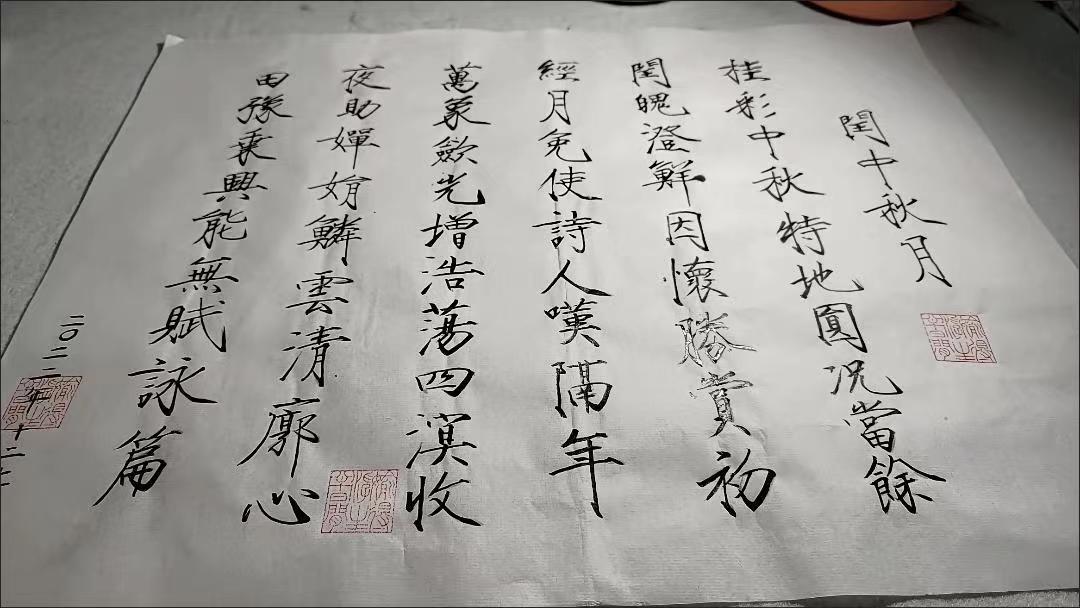 閏中秋月
桂彩中秋特地圓況當餘
閏魄澄鮮因懷勝賞初
經月免使詩人嘆隔年
萬象歛光增浩蕩四溟收
夜助嬋娟鱗雲清廓心
田豫乘興能無賦詠篇
二〇二二年十二